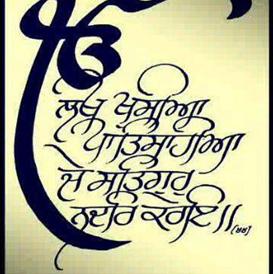 ੴ
ਲਖ ਖੁਸੀਆ
ਪਾਤਿਸਾਹੀਆ
ਜੇ ਸਤਿਗੁਰੁ
ਨਦਰਿ ਕਰੇਇ॥